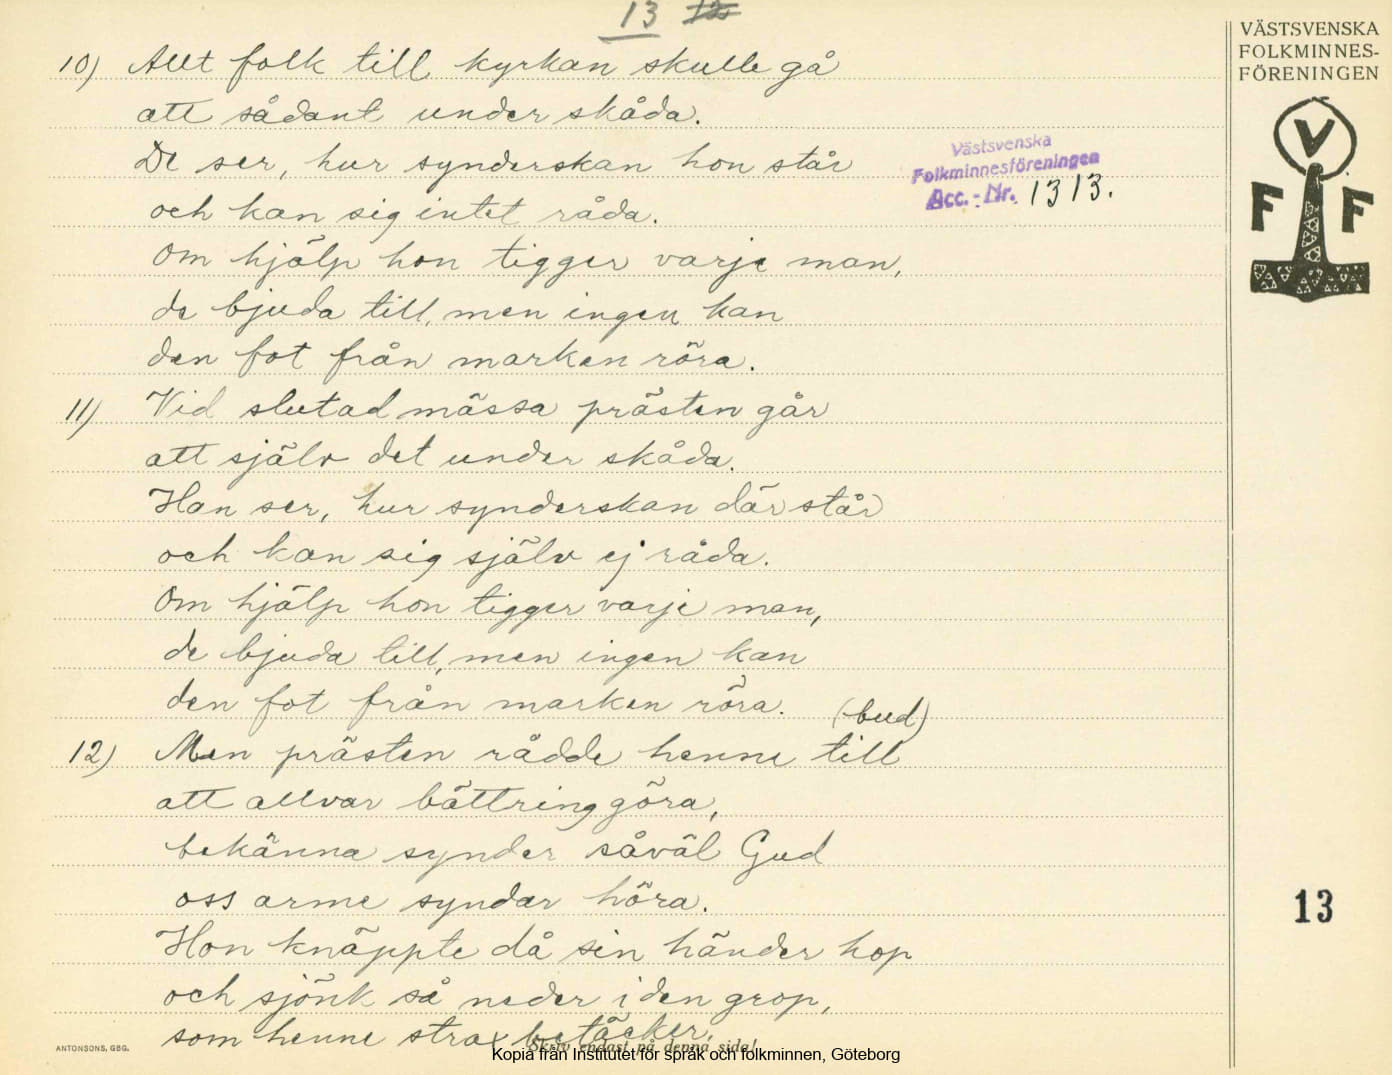 13 12
VÄSTSVENSKA
FOLKMINNES-
FÖRENINGEN
V
F F
10) Allt folk till kyrkan skulle gå
att sådant under skåda.
De ser, hur synderskan hon står
Västsvenska
Folkminnesföreningen
Acc.-Nr. 1313.
och kan sig intet råda.
Om hjälp hon tigger varje man,
de bjuda till, men ingen kan
den fot från marken röra.
11) Vid slutad mässa prästen går
att själv det under skåda.
Han ser, hur synderskan där står
och kan sig själv ej råda.
Om hjälp hon tigger varje man,
de bjuda till, men ingen kan
den fot från marken röra.
(bud)
12) Men prästen rådde henne till
att allvar bättring göra,
bekänna synder såväl Gud
oss arme syndar höra.
13
Hon knäppte då sin händer hop
och sjönk så neder i den grop,
som henne strax betäcker.
ANTONSONS, GBG.
Skriv endast på denna sida!
Kopia från Institutet för språk och folkminnen, Göteborg